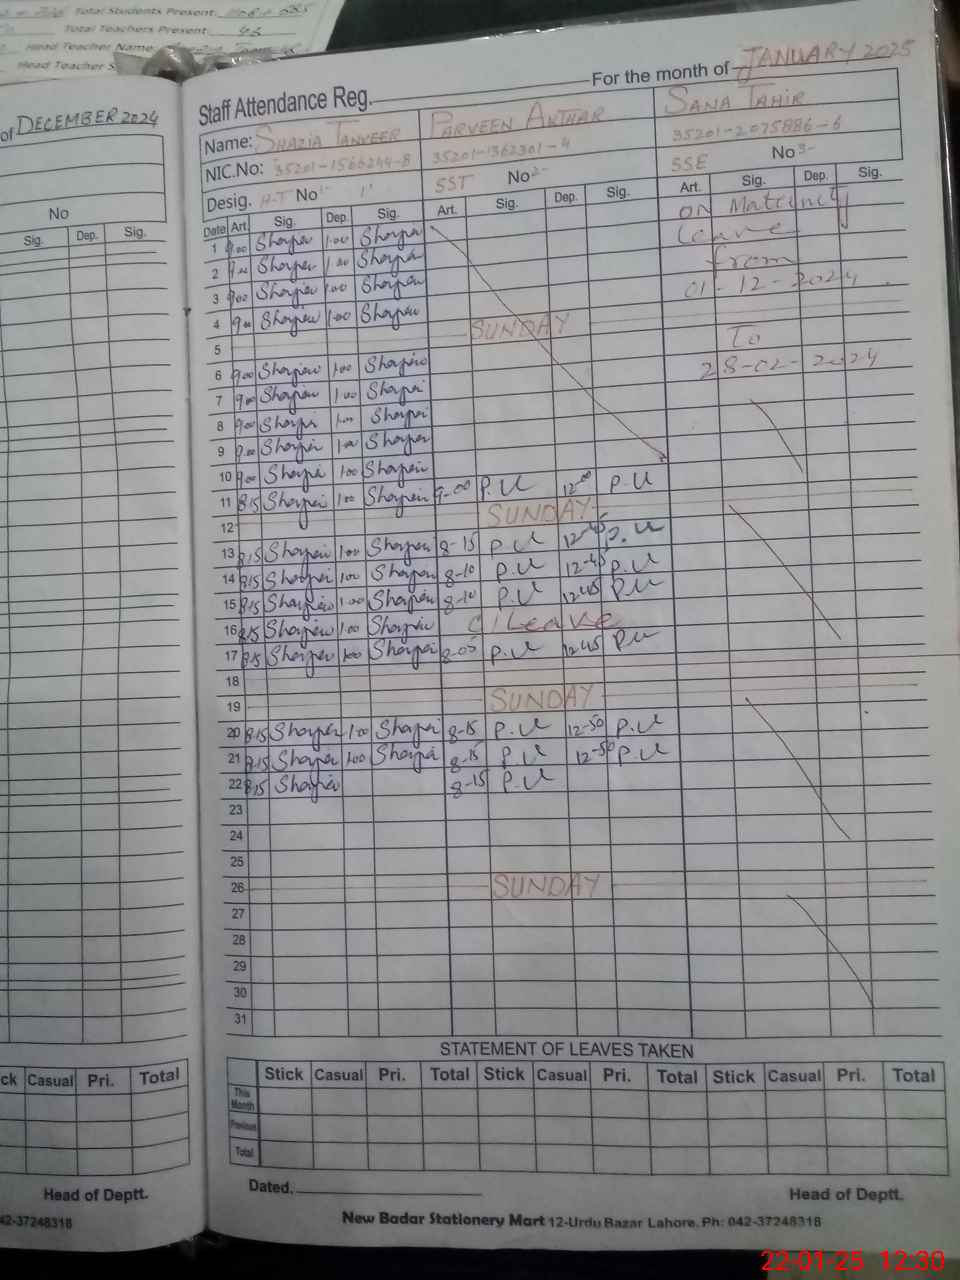 Total Students Present:
Total Teachers Present: 43
Head Teacher Name:
Head Teacher S
of DECEMBER 2024
No
Sig. Dep. Sig.
ck Casual Pri. Total
Head of Deptt.
42-37248318
Staff Attendance Reg. For the month of JANUARY 2025
Name: SHAZIA TANVEER PARVEEN AKHTAR SANA TAHIR
NIC.No: 35201-1566244-8 35201-1362301-4 35201-2075886-6
Desig. H-T No 1- 1' SST No 2- SSE No 3-
Date Art. Sig. Dep. Sig. Art. Sig. Dep. Sig. Art. Sig. Dep. Sig.
1 9:00 1:00 ON Maternity
2 9:00 1:00 Leave
3 9:00 1:00 from
4 9:00 1:00 01-12-2024
5 SUNDAY To
6 9:00 1:00 28-02-2024
7 9:00 1:00
8 9:00 1:00
9 9:00 1:00
10 9:00 1:00
11 8:15 1:00 9-00 P.U 12-00 P.U
12 SUNDAY
13 8:15 1:00 8-15 P.U 12-45 P.U
14 8:15 1:00 8-10 P.U 12-45 P.U
15 8:15 1:00 8-10 P.U 12-45 P.U
16 8:15 1:00 C/Leave
17 8:15 1:00 8-05 P.U 12-45 P.U
18
19 SUNDAY
20 8:15 1:00 8-15 P.U 12-50 P.U
21 8:15 1:00 8-15 P.U 12-50 P.U
22 8:15 8-15 P.U
23
24
25
26 SUNDAY
27
28
29
30
31
STATEMENT OF LEAVES TAKEN
Stick Casual Pri. Total Stick Casual Pri. Total Stick Casual Pri. Total
This Month
Previous
Total
Dated. Head of Deptt.
New Badar Stationery Mart 12-Urdu Bazar Lahore. Ph: 042-37248318
22-01-25 12:30